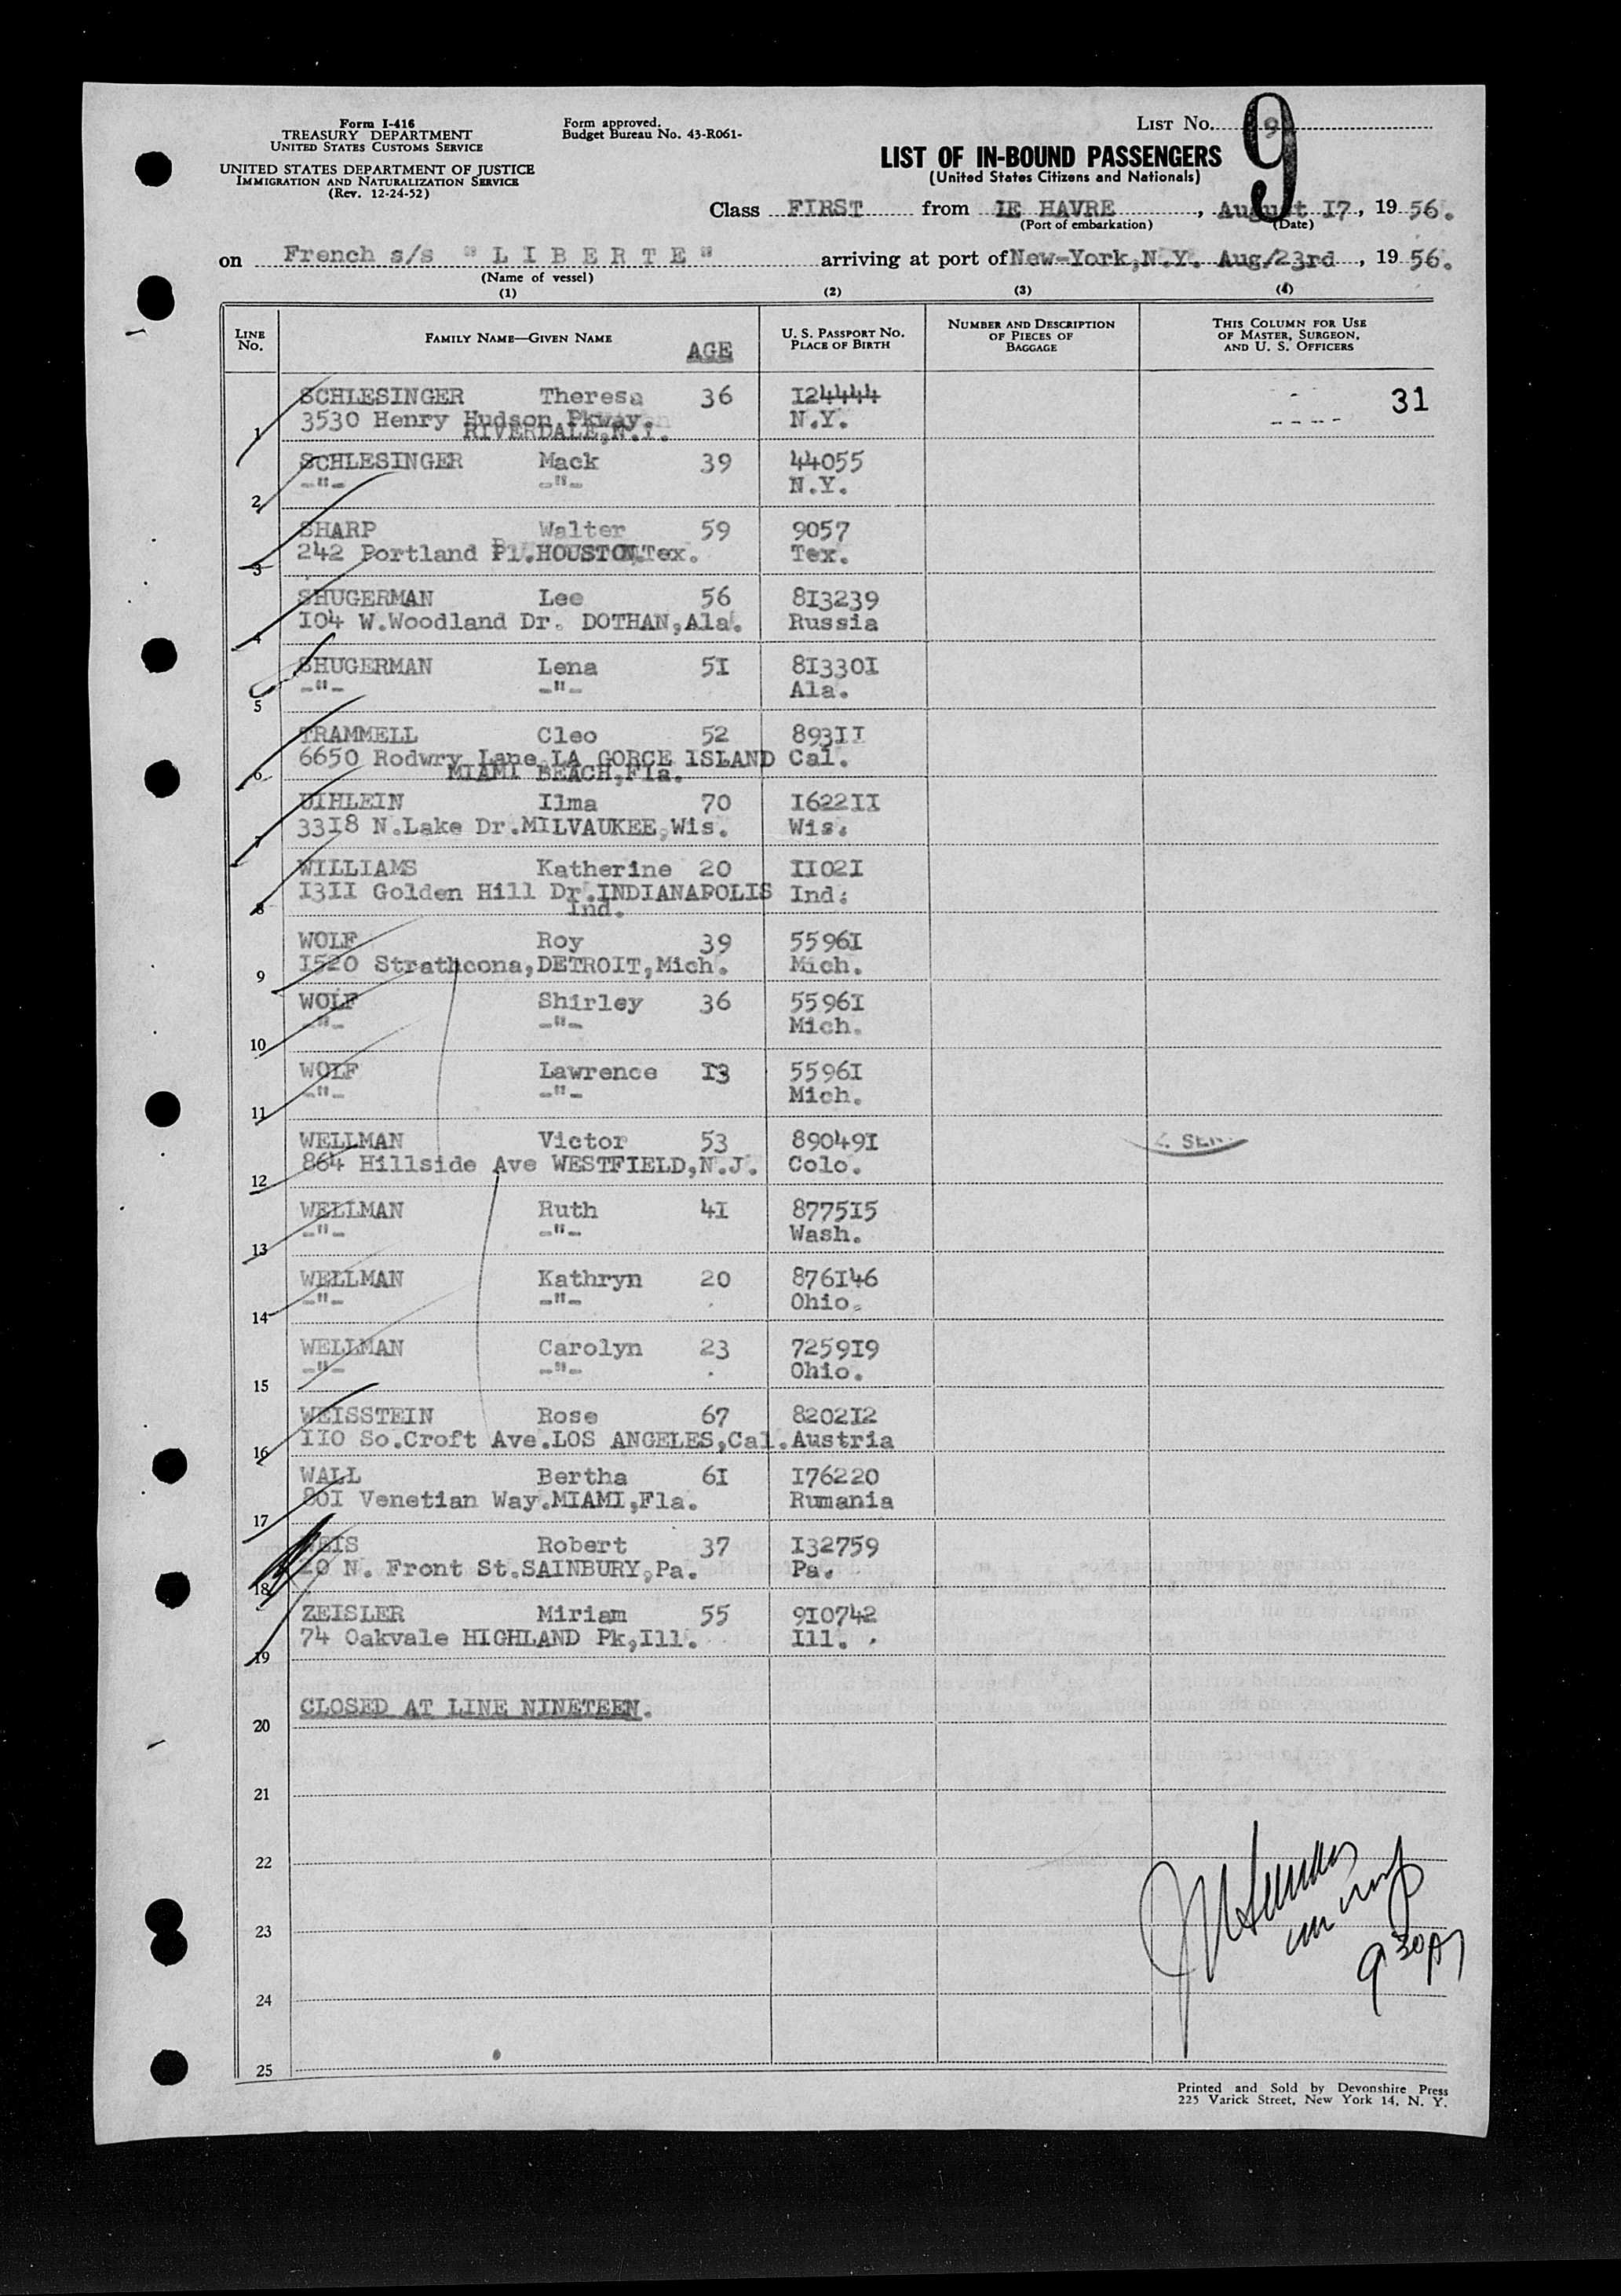 Form I-416
TREASURY DEPARTMENT
UNITED STATES CUSTOMS SERVICE
UNITED STATES DEPARTMENT OF JUSTICE
IMMIGRATION AND NATURALIZATION SERVICE
(Rev. 12-24-52)
Form approved.
Budget Bureau No. 43-R061-
LIST NO. 9
9
LIST OF IN-BOUND PASSENGERS
(United States Citizens and Nationals)
Class FIRST from LE HAVRE, August 17, 1956.
(Port of embarkation) (Date)
on French s/s "L I B E R T E" arriving at port of New-York,N.Y. Aug/23rd, 1956.
(Name of vessel)
(1) (2) (3) (4)
LINE No. FAMILY NAME—GIVEN NAME AGE U. S. PASSPORT NO. PLACE OF BIRTH NUMBER AND DESCRIPTION OF PIECES OF BAGGAGE THIS COLUMN FOR USE OF MASTER, SURGEON, AND U. S. OFFICERS
SCHLESINGER Theresa 36 I24444 31
3530 Henry Hudson Pkway. N.Y.
1 RIVERDALE,N.Y.
SCHLESINGER Mack 39 44055
-"- -"- N.Y.
2
SHARP Walter 59 9057
242 Portland Pl.HOUSTON.Tex. Tex.
3
SHUGERMAN Lee 56 8I3239
I04 W.Woodland Dr. DOTHAN,Ala. Russia
4
SHUGERMAN Lena 5I 8I330I
-"- -"- Ala.
5
TRAMMELL Cleo 52 893II
6650 Rodwry Lane LA GORCE ISLAND Cal.
6 MIAMI BEACH,Fla.
UIHLEIN Ilma 70 I622II
33I8 N.Lake Dr.MILVAUKEE,Wis. Wis.
7
WILLIAMS Katherine 20 II02I
I3II Golden Hill Dr.INDIANAPOLIS Ind.
8 Ind.
WOLF Roy 39 5596I
I520 Strathcona,DETROIT,Mich. Mich.
9
WOLF Shirley 36 5596I
-"- -"- Mich.
10
WOLF Lawrence I3 5596I
-"- -"- Mich.
11
WELLMAN Victor 53 89049I
864 Hillside Ave WESTFIELD,N.J. Colo.
12
WELLMAN Ruth 4I 8775I5
-"- -"- Wash.
13
WELLMAN Kathryn 20 876I46
-"- -"- Ohio.
14
WELLMAN Carolyn 23 7259I9
-"- -"- Ohio.
15
WEISSTEIN Rose 67 8202I2
II0 So.Croft Ave.LOS ANGELES,Cal. Austria
16
WALL Bertha 6I I76220
80I Venetian Way.MIAMI,Fla. Rumania
17
WEIS Robert 37 I32759
20 N. Front St.SAINBURY,Pa. Pa.
18
ZEISLER Miriam 55 9I0742
74 Oakvale HIGHLAND Pk,Ill. Ill.
19
CLOSED AT LINE NINETEEN.
20
21
22
23
24
25
9 30
Printed and Sold by Devonshire Press
225 Varick Street, New York 14, N. Y.